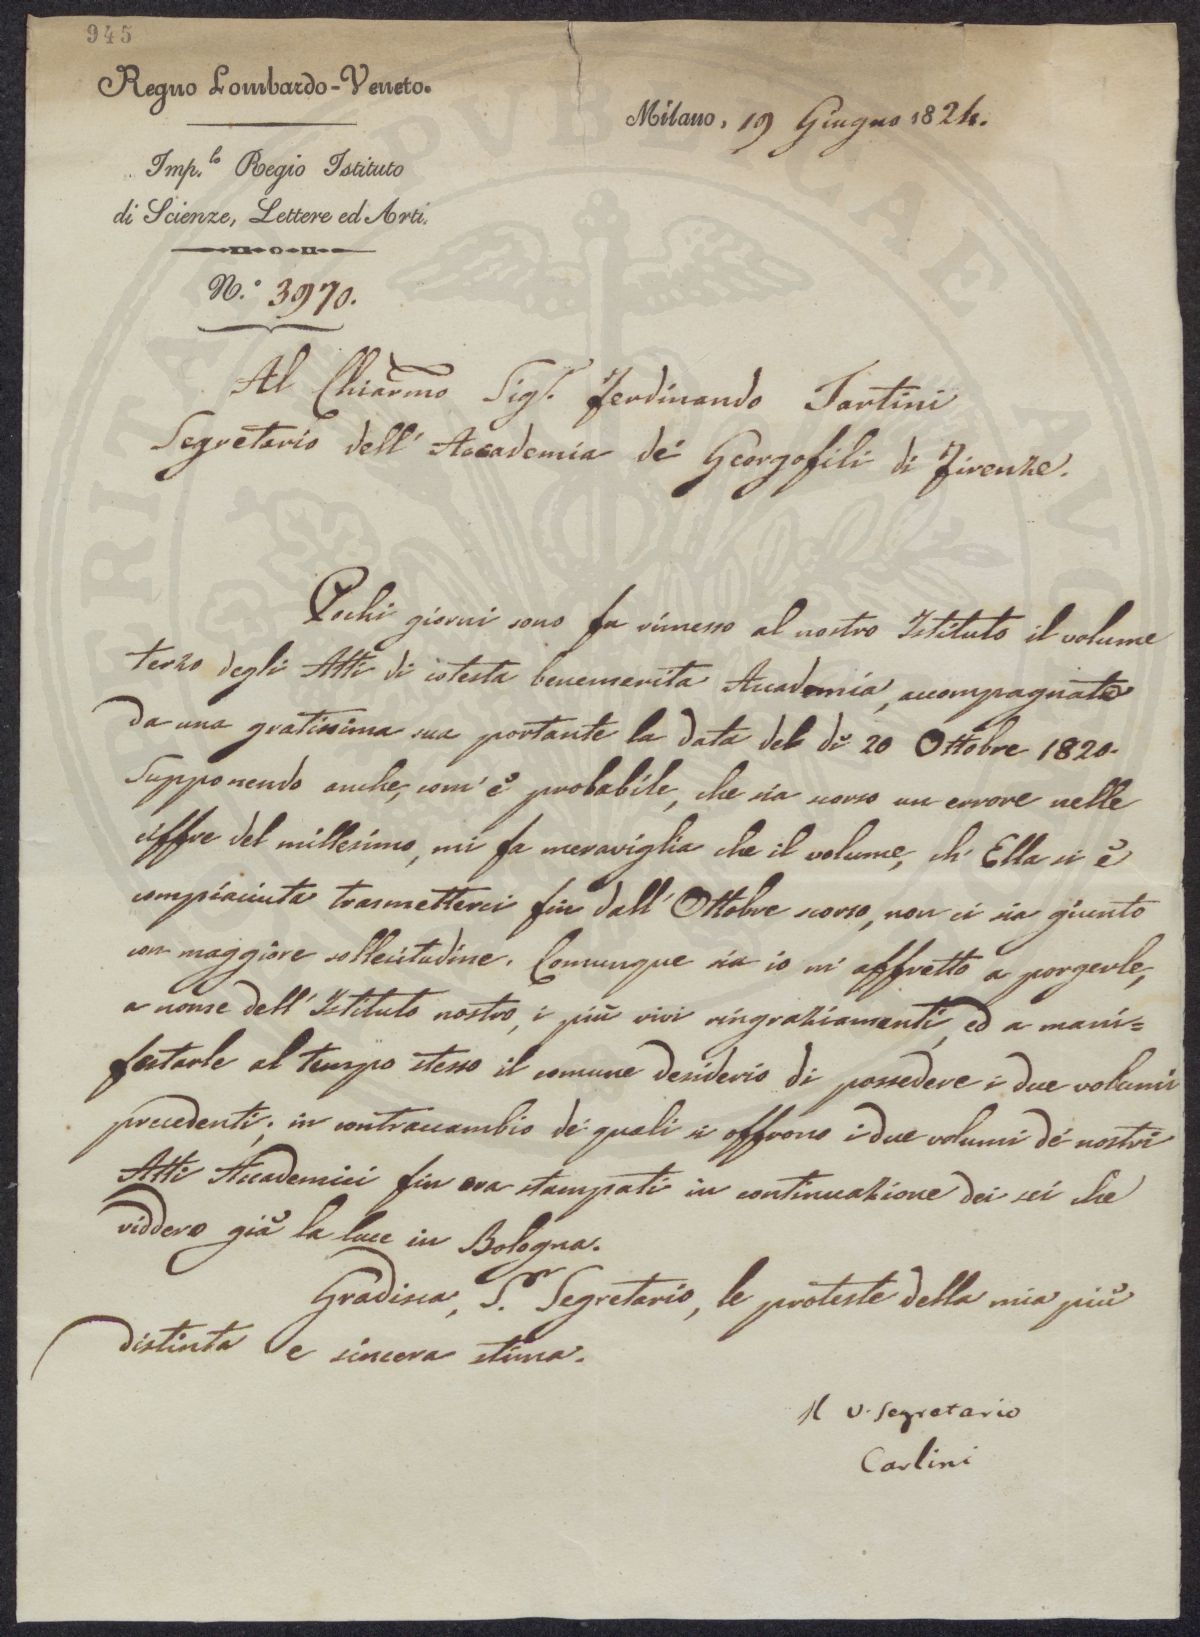 945
Regno Lombardo-Veneto.
Milano, 19 Giugno 1824.
Imp.le Regio Istituto
di Scienze, Lettere ed Arti.
N.° 3970.
Al Chiarmo Sigr. Ferdinando Tartini
Segretario dell' Accademia de' Georgofili di Firenze.
Pochi giorni sono fu rimesso al nostro Istituto il volume
terzo degli Atti di cotesta benemerita Accademia, accompagnato
da una gratissima sua portante la data del dì 20 Ottobre 1820.
Supponendo anche, com' è probabile, che sia scorso un errore nelle
ciffre del millesimo, mi fa meraviglia che il volume, ch' Ella si è
compiaciuta trasmetterci fin dall' Ottobre scorso, non ci sia giunto
con maggiore sollecitudine. Comunque sia io m' affretto a porgerle,
a nome dell' Istituto nostro, i più vivi ringraziamenti, ed a mani=
festarle al tempo stesso il comune desiderio di possedere i due volumi
precedenti; in contraccambio de' quali si offrono i due volumi de' nostri
Atti Accademici fin ora stampati in continuazione dei sei che
viddero già la luce in Bologna.
Gradisca, S.r Segretario, le proteste della mia più
distinta e sincera stima.
Il V. Segretario
Carlini